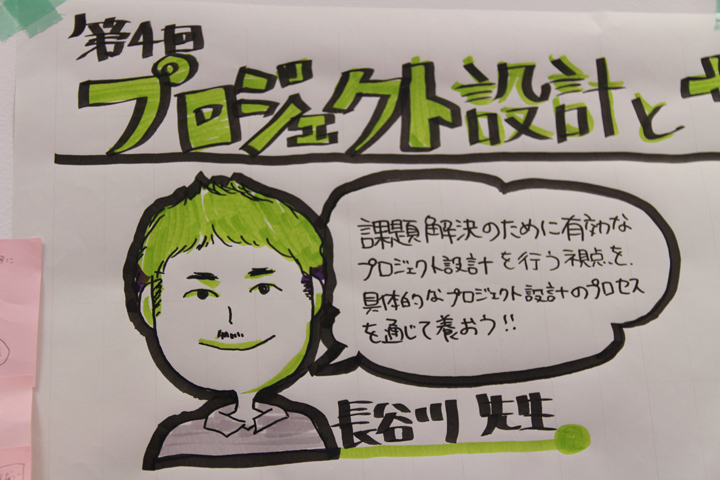 第4回
プロジェクト設計と
課題解決のために有効な
プロジェクト設計を行う視点を、
具体的なプロジェクト設計のプロセス
を通じて養おう!!
長谷川 先生